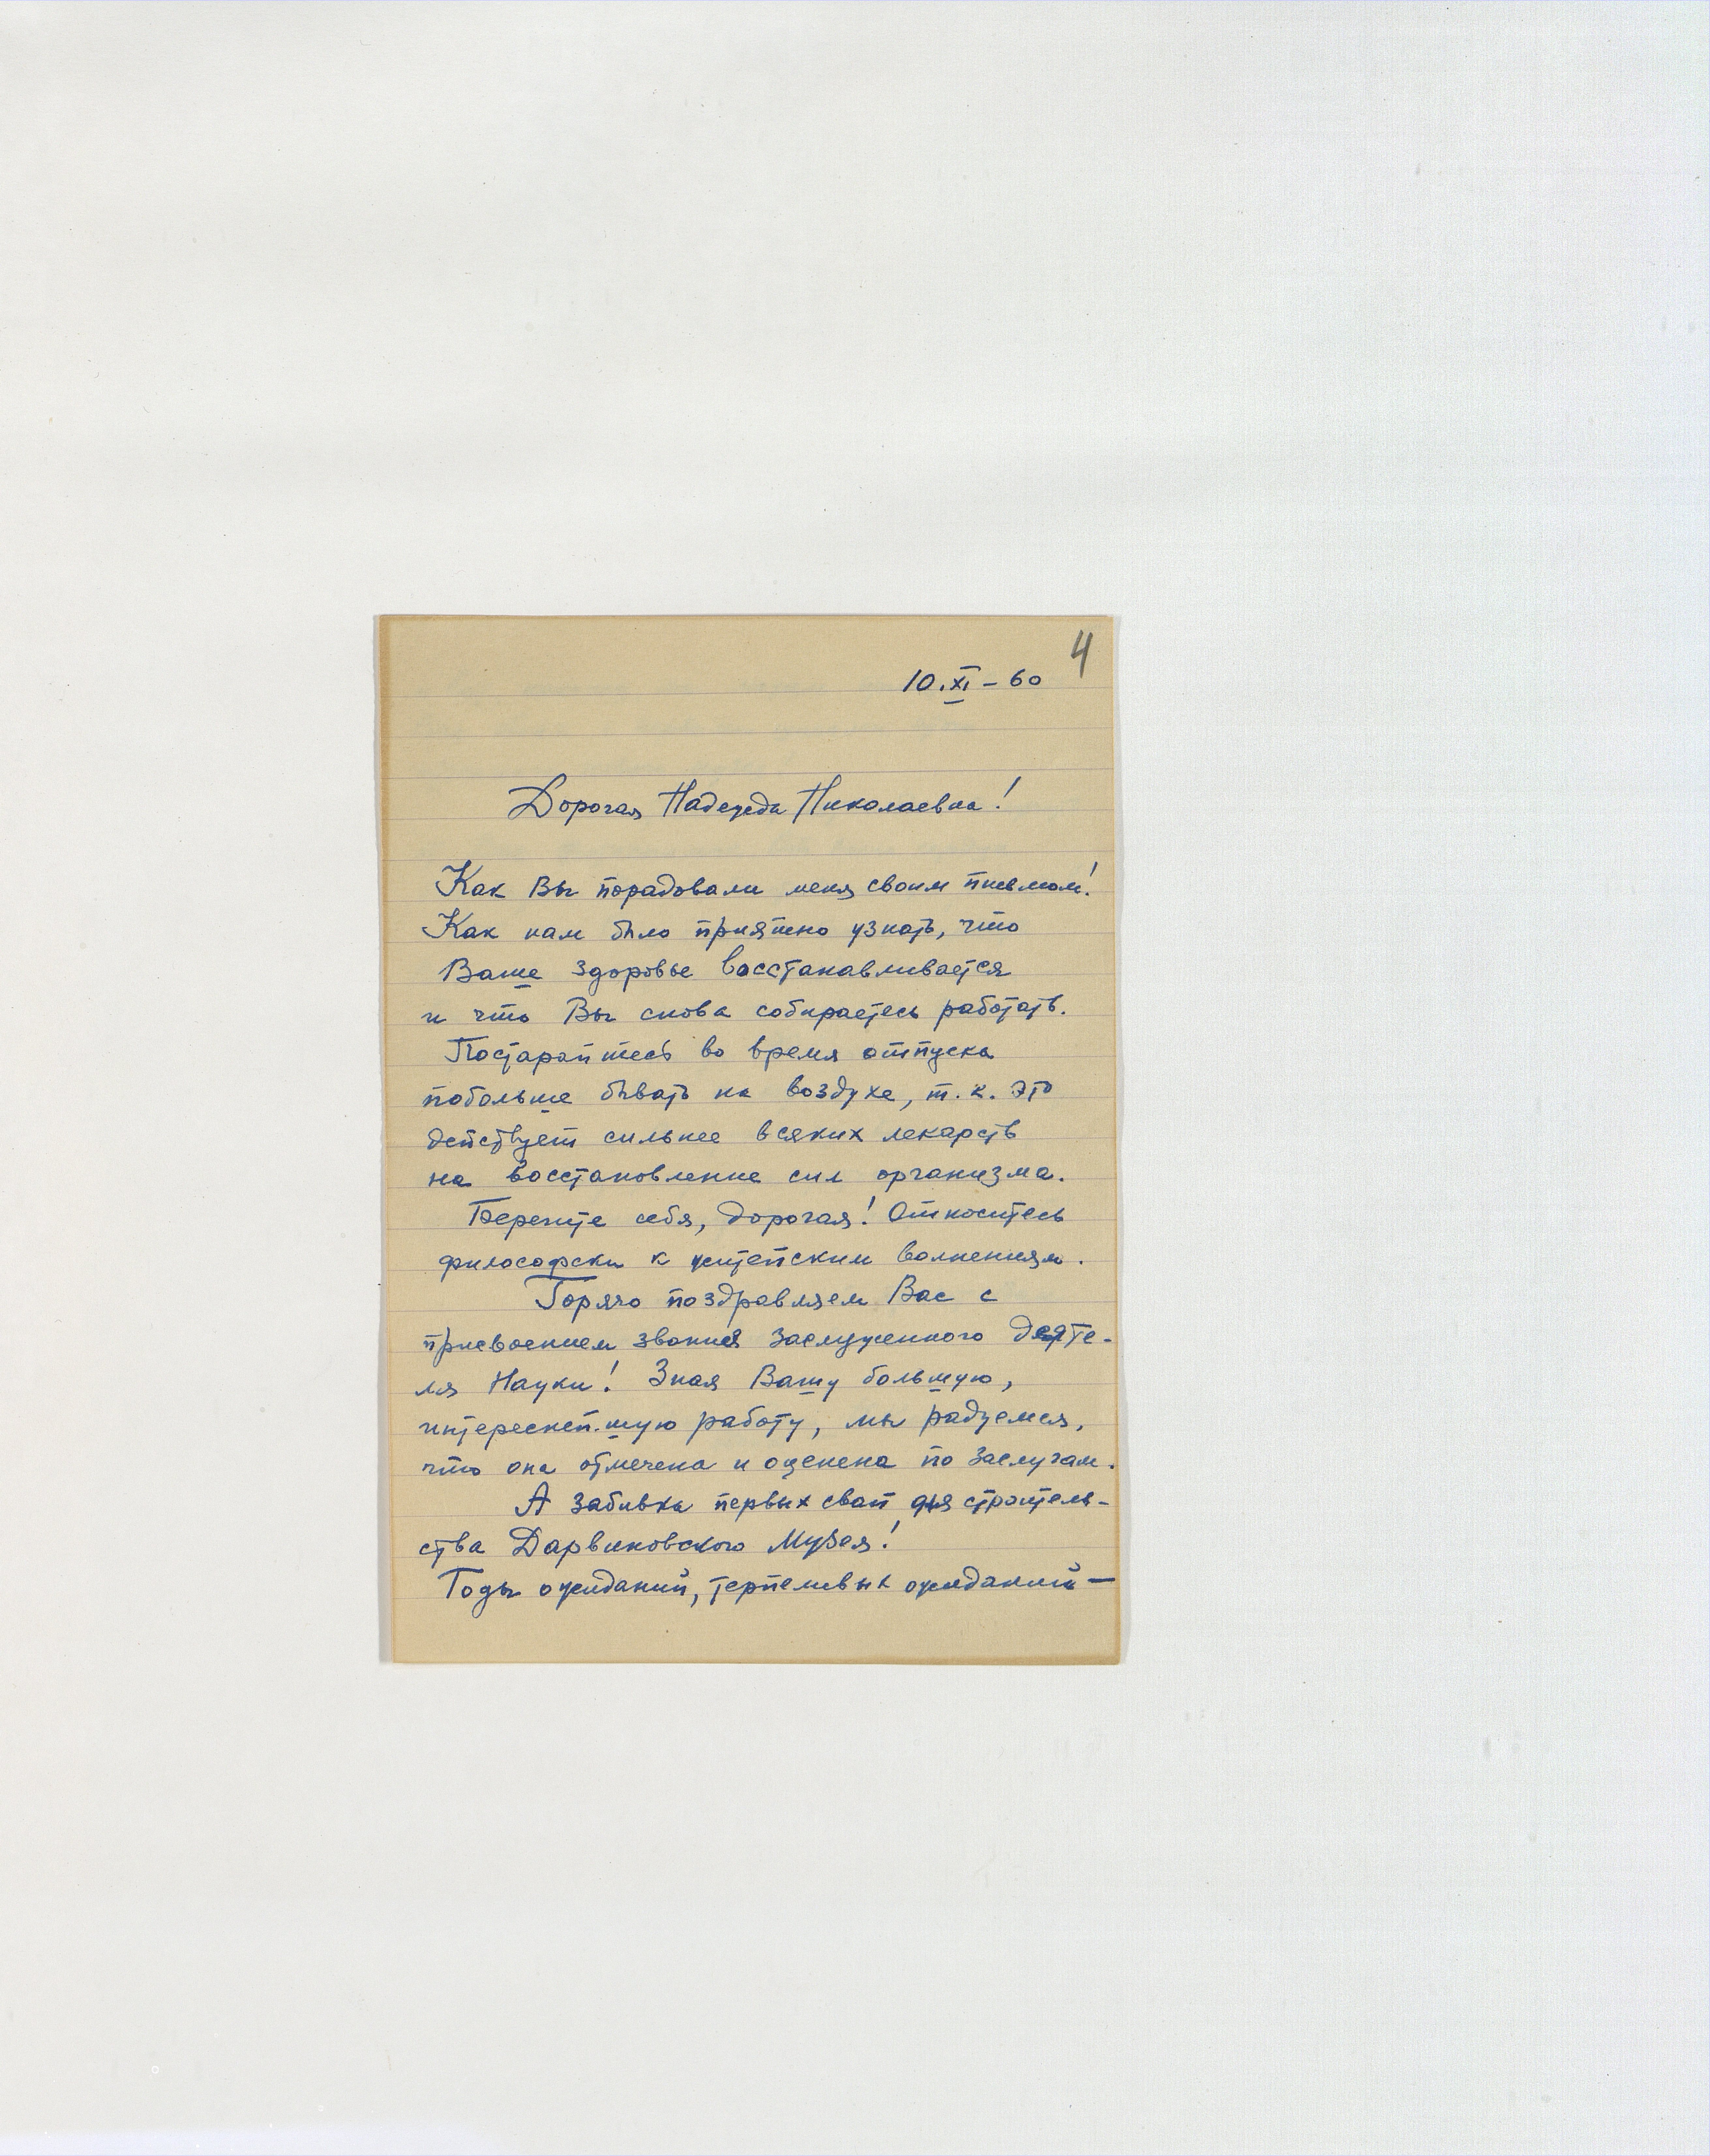 4
10.XI – 60
Дорогая Надежда Николаевна!
Как Вы порадовали меня своим письмом!
Как нам было приятно узнать, что
Ваше здоровье восстанавливается
и что Вы снова собираетесь работать.
Постарайтесь во время отпуска
побольше бывать на воздухе, т.к. это
действует сильнее всяких лекарств
на восстановление сил организма.
Берегите себя, дорогая! Относитесь
философски к житейским волнениям.
Горячо поздравляем Вас с
присвоением звания Заслуженного Деяте-
ля Науки! Зная Вашу большую,
интереснейшую работу, мы радуемся,
что она отмечена и оценена по заслугам.
А забивка первых свай для строитель-
ства Дарвиновского Музея!
Годы ожиданий, терпеливых ожиданий —